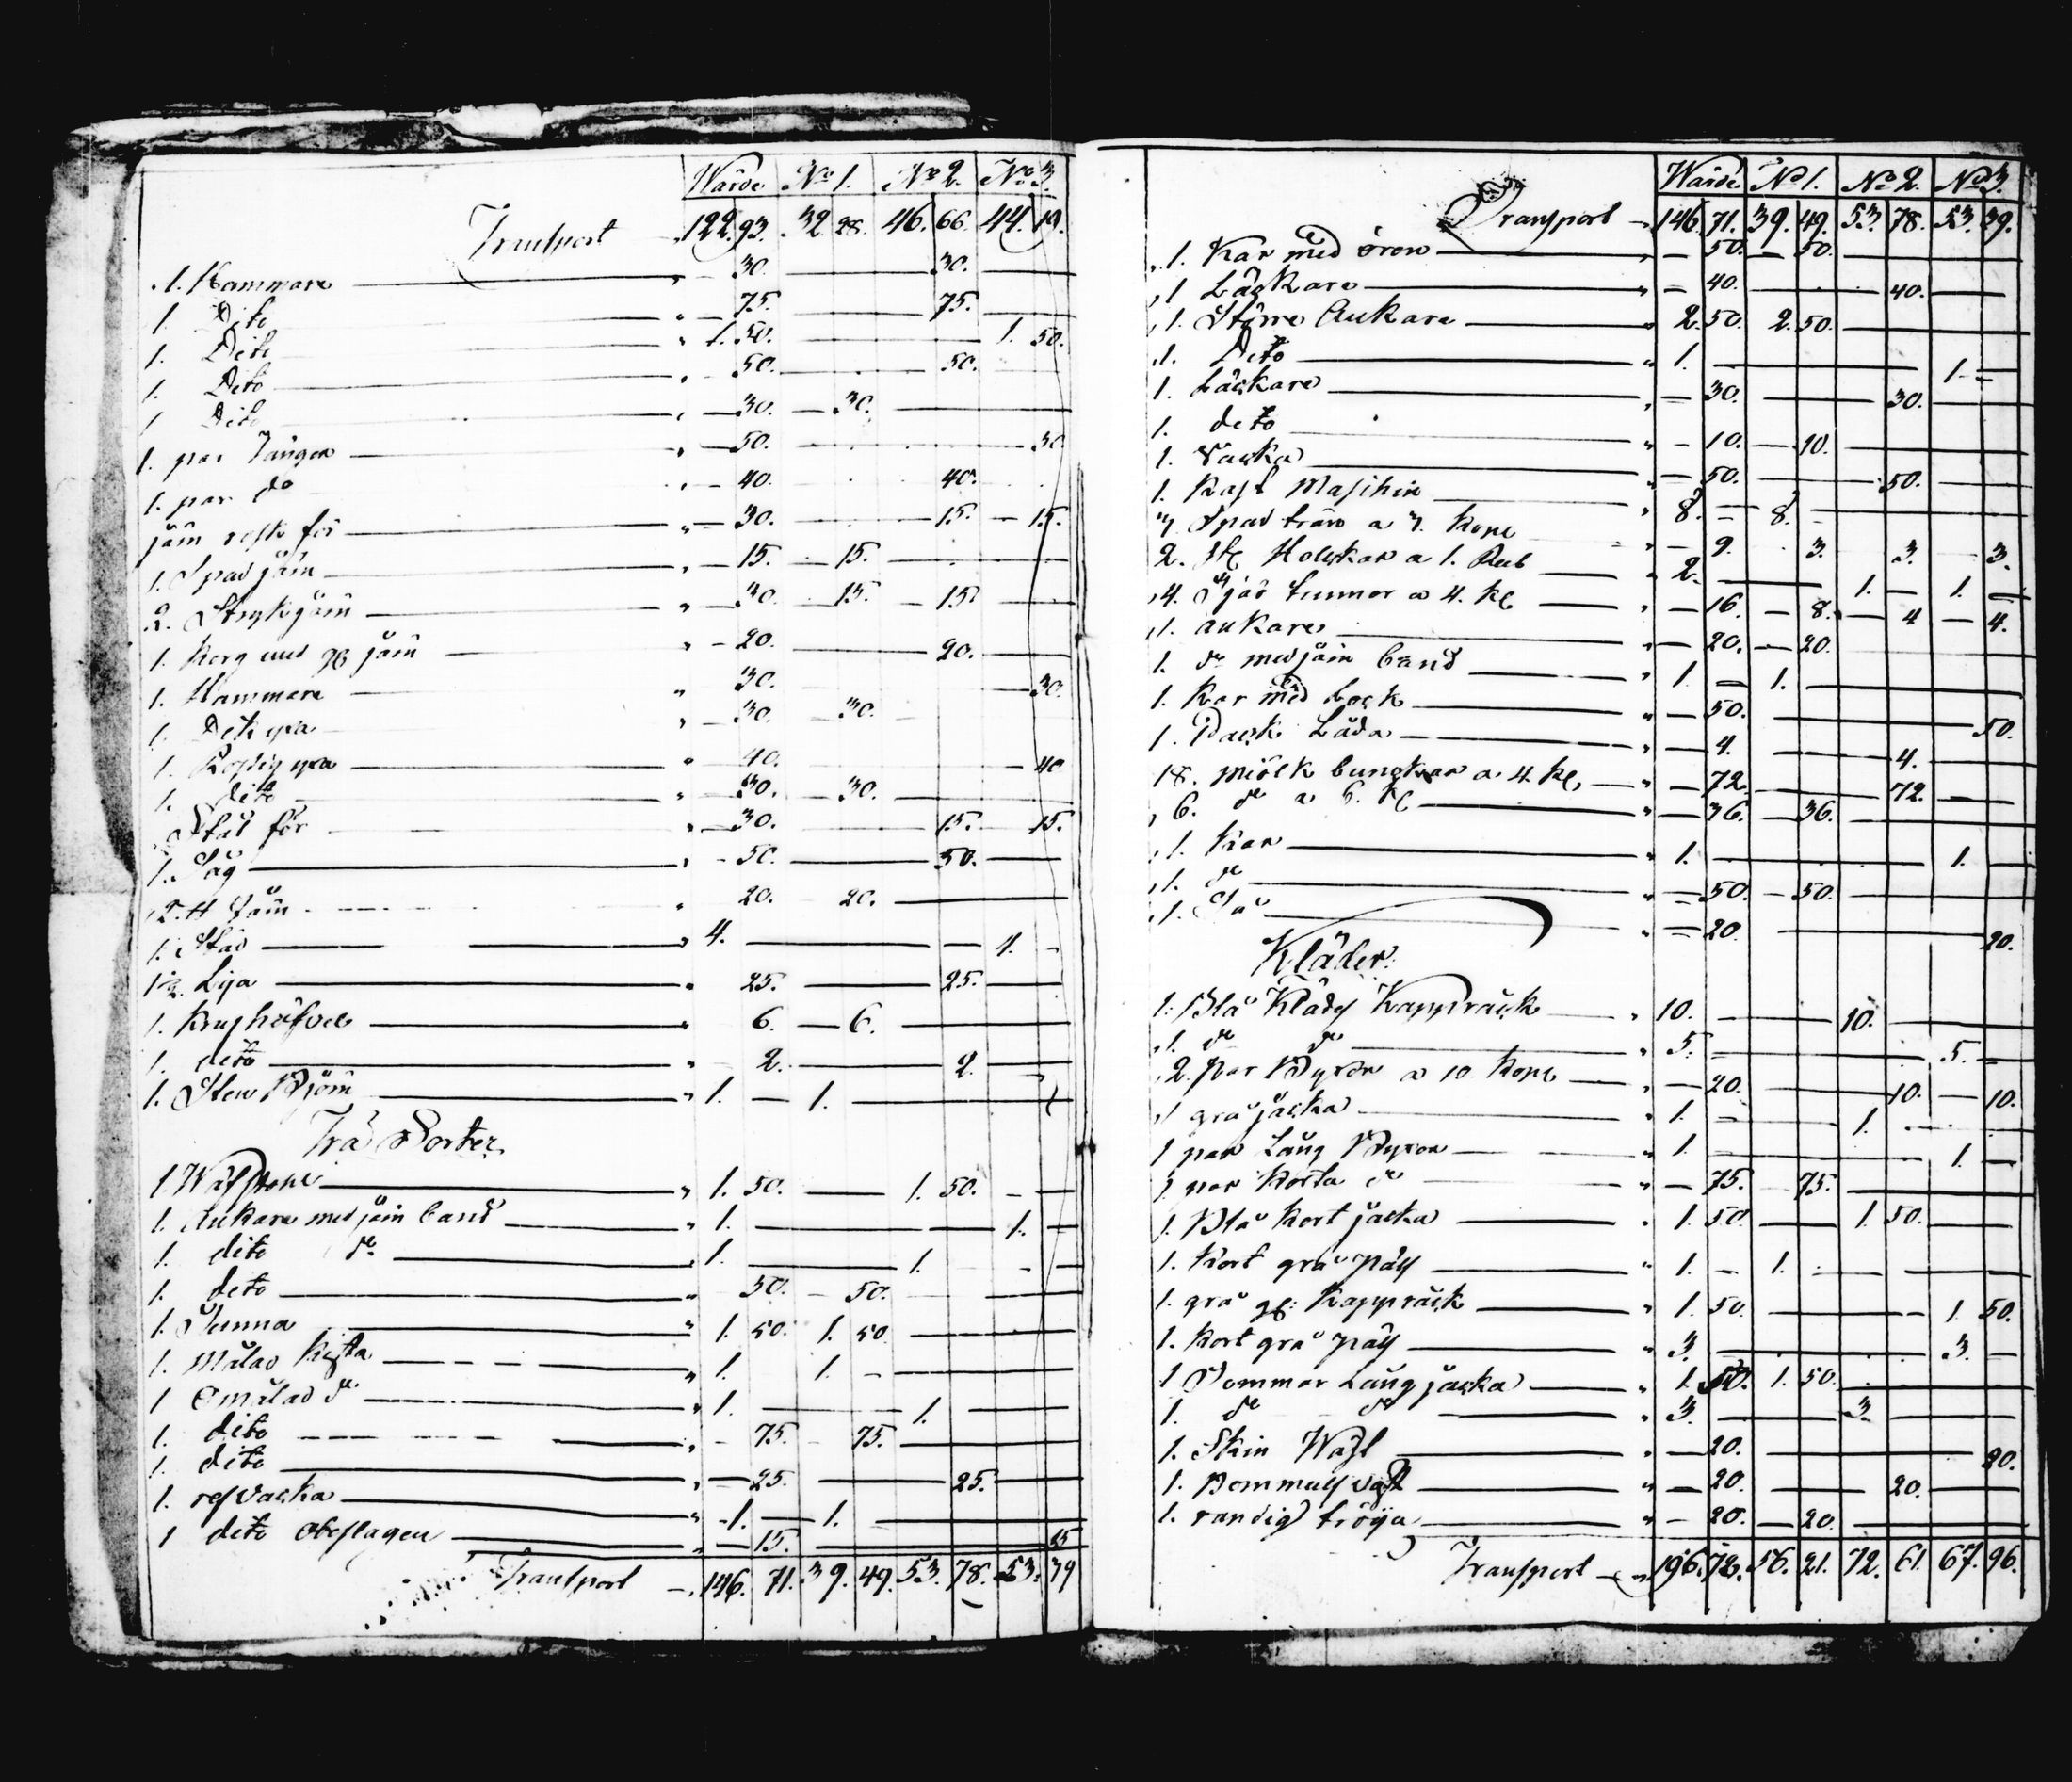 Wärde No 1. No 2. No 3.
Transport 122. 93. 32. 28. 46. 66. 44. 19.
1. Hammare 30. 30.
1. Dito 75. 75.
1. Dito 1. 50. 1. 50.
1. Dito 50. 50.
1 Dito 30. 30.
1. par Tänger 50. 50
1. par do 40. 40.
järn för 30. 15. 15.
1. Spad järn 15. 15.
2. Strykjärn 30. 15. 15.
1. Korg med järn 20. 20.
1. Hammare 30. 30.
1. Dito 30. 30.
1. 40. 40
1. dito 30. 30.
Stål för 30. 15. 15.
1. Såg 50. 50.
järn 20. 20.
1. Städ 4. 4.
1. Lija 25. 25.
1. 6. 6.
1. dito 2. 2.
1. 1. 1.
Trä Sorter
1. 1. 50. 1. 50.
1. Ankare med järn band 1. 1.
1. dito do 1. 1.
1. dito 50. 50.
1. Tunna 1. 50. 1. 50
1. Målad Kista 1. 1.
1 Omålad do 1. 1.
1. dito 75. 75.
1. dito 25. 25.
1. resvaska 1. 1.
1 dito obeslagen 15. 15
Transport 146. 71. 39. 49. 53. 78. 53. 39
Wärde No 1. No 2. No 3.
Transport 146. 71. 39. 49. 53. 78. 53. 39.
1. Kar med öron 50. 50.
1 Läckare 40. 40.
1. Större Ankare 2. 50. 2. 50.
1. Dito 1. 1.
1. Läckare 30. 30.
1. dito 10. 10.
1. Väska 50. 50.
1. Kast Maschin 8. 8.
3 Spad trän a 3. Kope 9. 3. 3. 3.
2. st a 1. Rub 2. 1. 1.
4. tunnor a 4. K 16. 8. 4 4.
1. ankare 20. 20.
1. do med järn band 1. 1.
1. Kar med Lock 50. 50.
1. Låda 4. 4.
18. miölk bunckar a 4. K 72. 72.
6. do a 6. K 36. 36.
1. Kar 1. 1.
1. do 50. 50.
1. Så 20. 20.
Kläder.
1. Blå Klädes Kappråck 10. 10.
1. do do 5. 5.
2. par Byxor a 10. Kope 20. 10. 10.
1 grå jacka 1. 1.
1 par Lång Byxor 1. 1.
1 par Korta do 75. 75.
1. Blå Kort jacka 1. 50 1. 50.
1. Kort grå päls 1. 1.
1. grå gl. Kappråck 1. 50. 1. 50.
1. Kort grå päls 3. 3.
1 Sommar Lång jacka 1. 50. 1. 50.
1. do do 3. 3.
1. Skin Wäst 20. 20.
1. Bommuls väst 20. 20.
1. randig tröija 20. 20
Transport 196. 78. 56. 21. 72. 61. 67. 96.